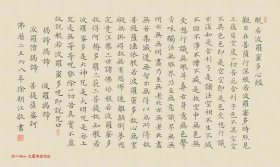 般若波羅蜜多心經
觀自在菩薩行深般若波羅蜜多時照見
五蘊皆空度一切苦厄舍利子色不異空空
不異色色即是空空即是色受想行識
亦復如是舍利子是諸法空相不生不滅
不垢不淨不增不減是故空中無色無受
想行識無眼耳鼻舌身意無色聲香
味觸法無眼界乃至無意識界無無
明亦無無明盡乃至無老死亦無老死盡
無苦集滅道無智亦無得以無所得故
菩提薩埵依般若波羅蜜多故心無罣
礙無罣礙故無有恐怖遠離顛倒夢想
究竟涅槃三世諸佛依般若波羅蜜多故
得阿耨多羅三藐三菩提故知般若
波羅蜜多是大神咒是大明咒是無上
咒是無等等咒能除一切苦真實不虛
故說般若波羅蜜多咒即說咒曰
揭諦揭諦 波羅揭諦
波羅僧揭諦 菩提薩婆訶
佛曆二五六八年徐朝敬書